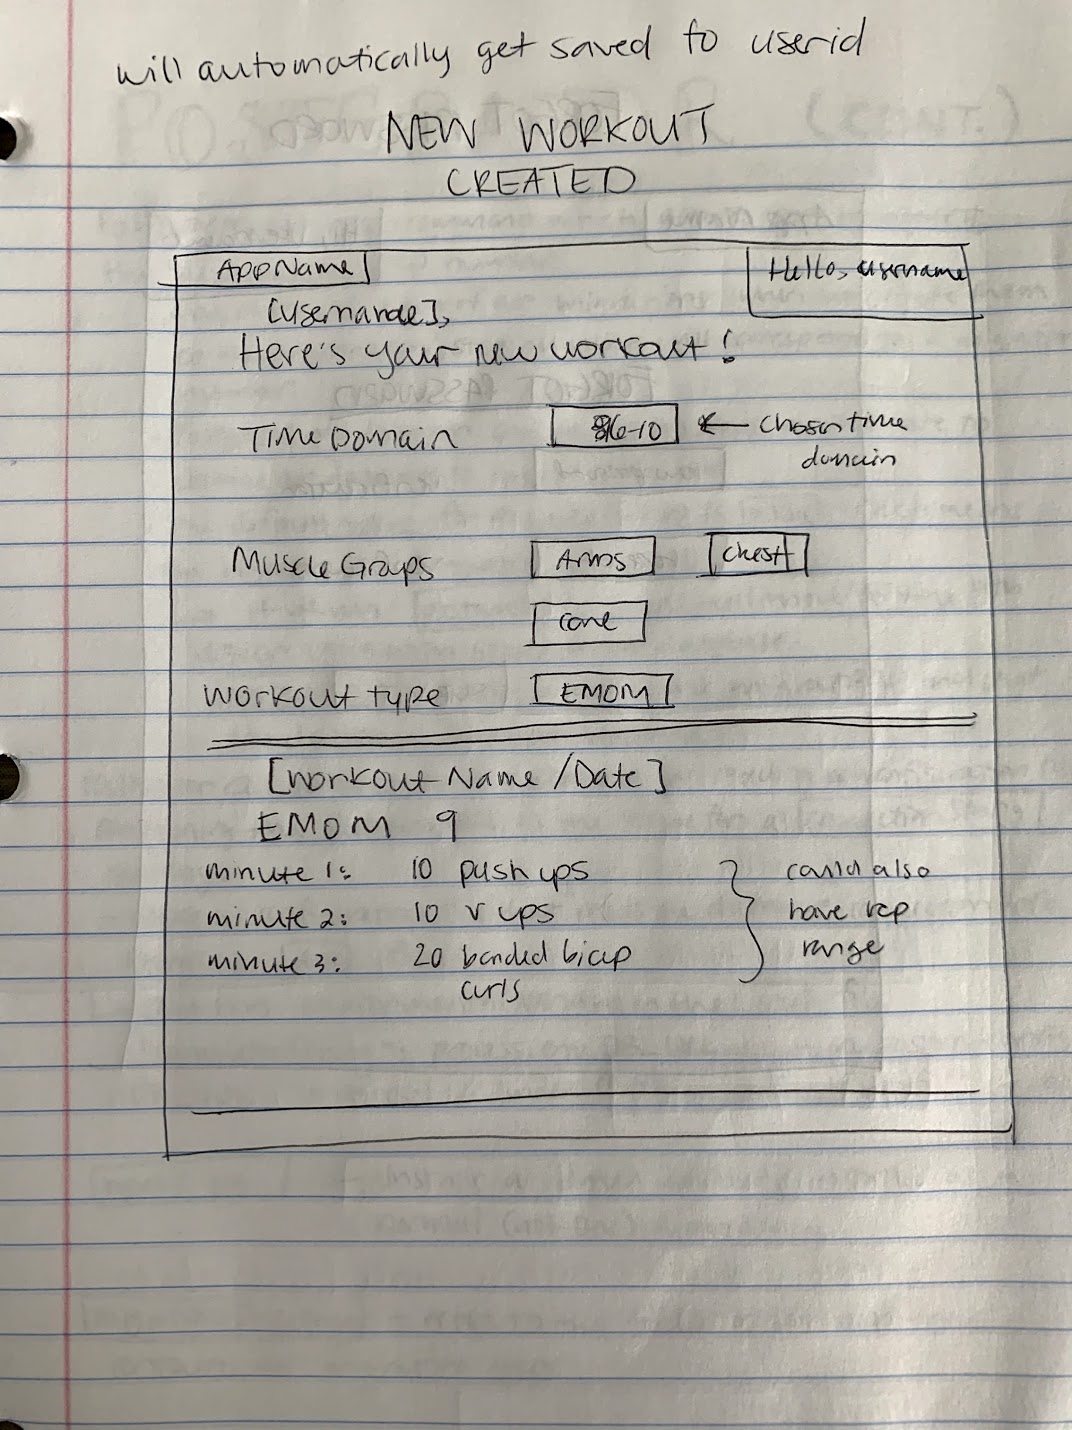 will automatically get saved to userid
NEW WORKOUT
CREATED
AppName
Hello, username
[username],
Here's your new workout!
Time Domain
6-10
← chosen time
domain
Muscle Groups
Arms
Chest
Core
Workout type
EMOM
[Workout Name / Date]
EMOM 9
minute 1: 10 push ups
minute 2: 10 v ups
minute 3: 20 banded bicep
curls
could also
have rep
range